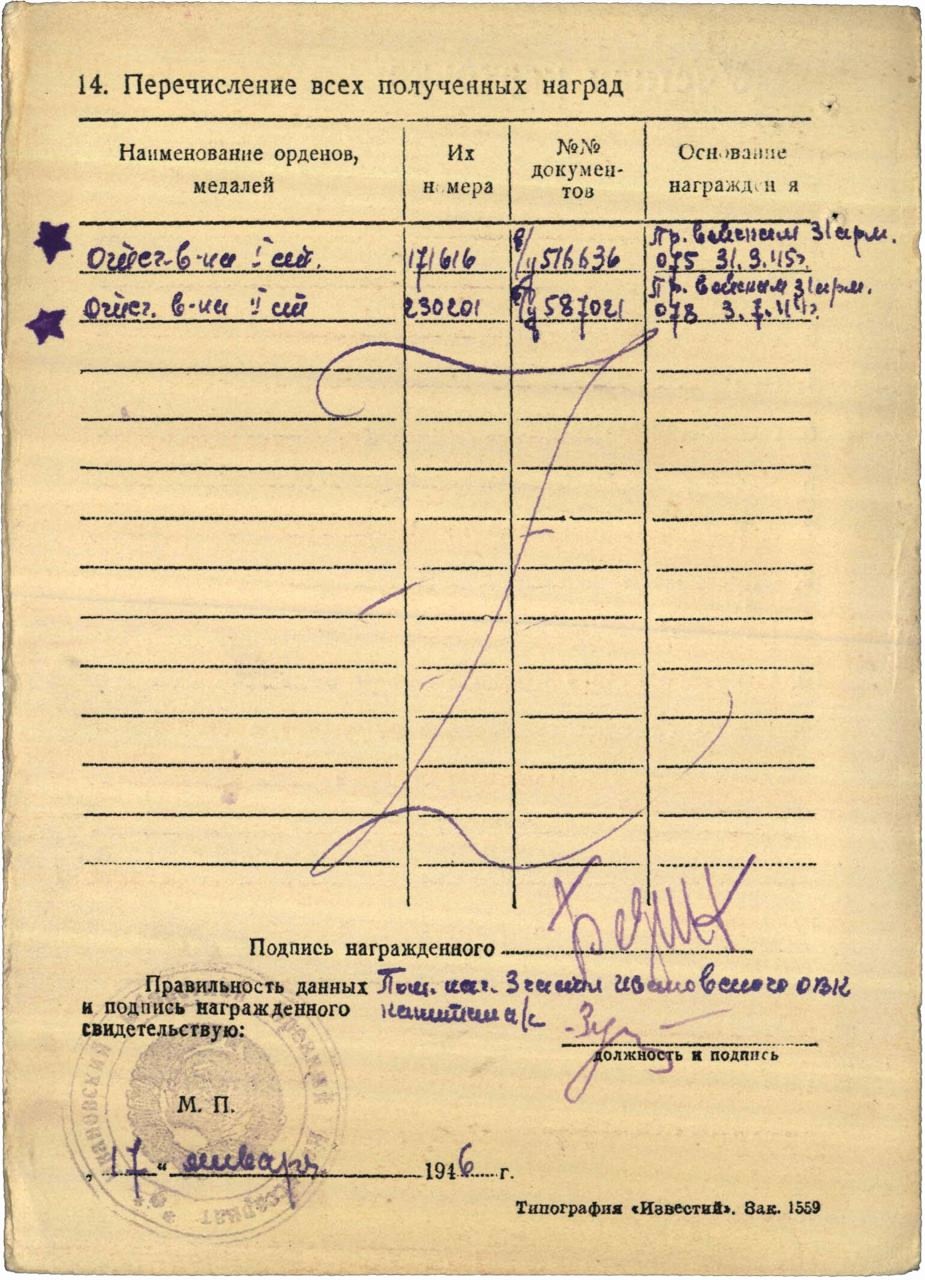 14. Перечисление всех полученных наград
Наименование орденов, медалей
Их номера
№№ документов
Основание награждения
Отеч. в-на I ст. 171616 516636 Пр. войскам 31 арм. 075 31.3.45г.
Отеч. в-на II ст 230201 587021 Пр. войскам 31 арм. 078 3.7.44г.
Подпись награжденного
Правильность данных Пом. нач. 3 части Ивановского ОВК
и подпись награжденного капитан а/с
свидетельствую:
должность и подпись
М. П.
„17“ января 1946 г.
Типография «Известий». Зак. 1559